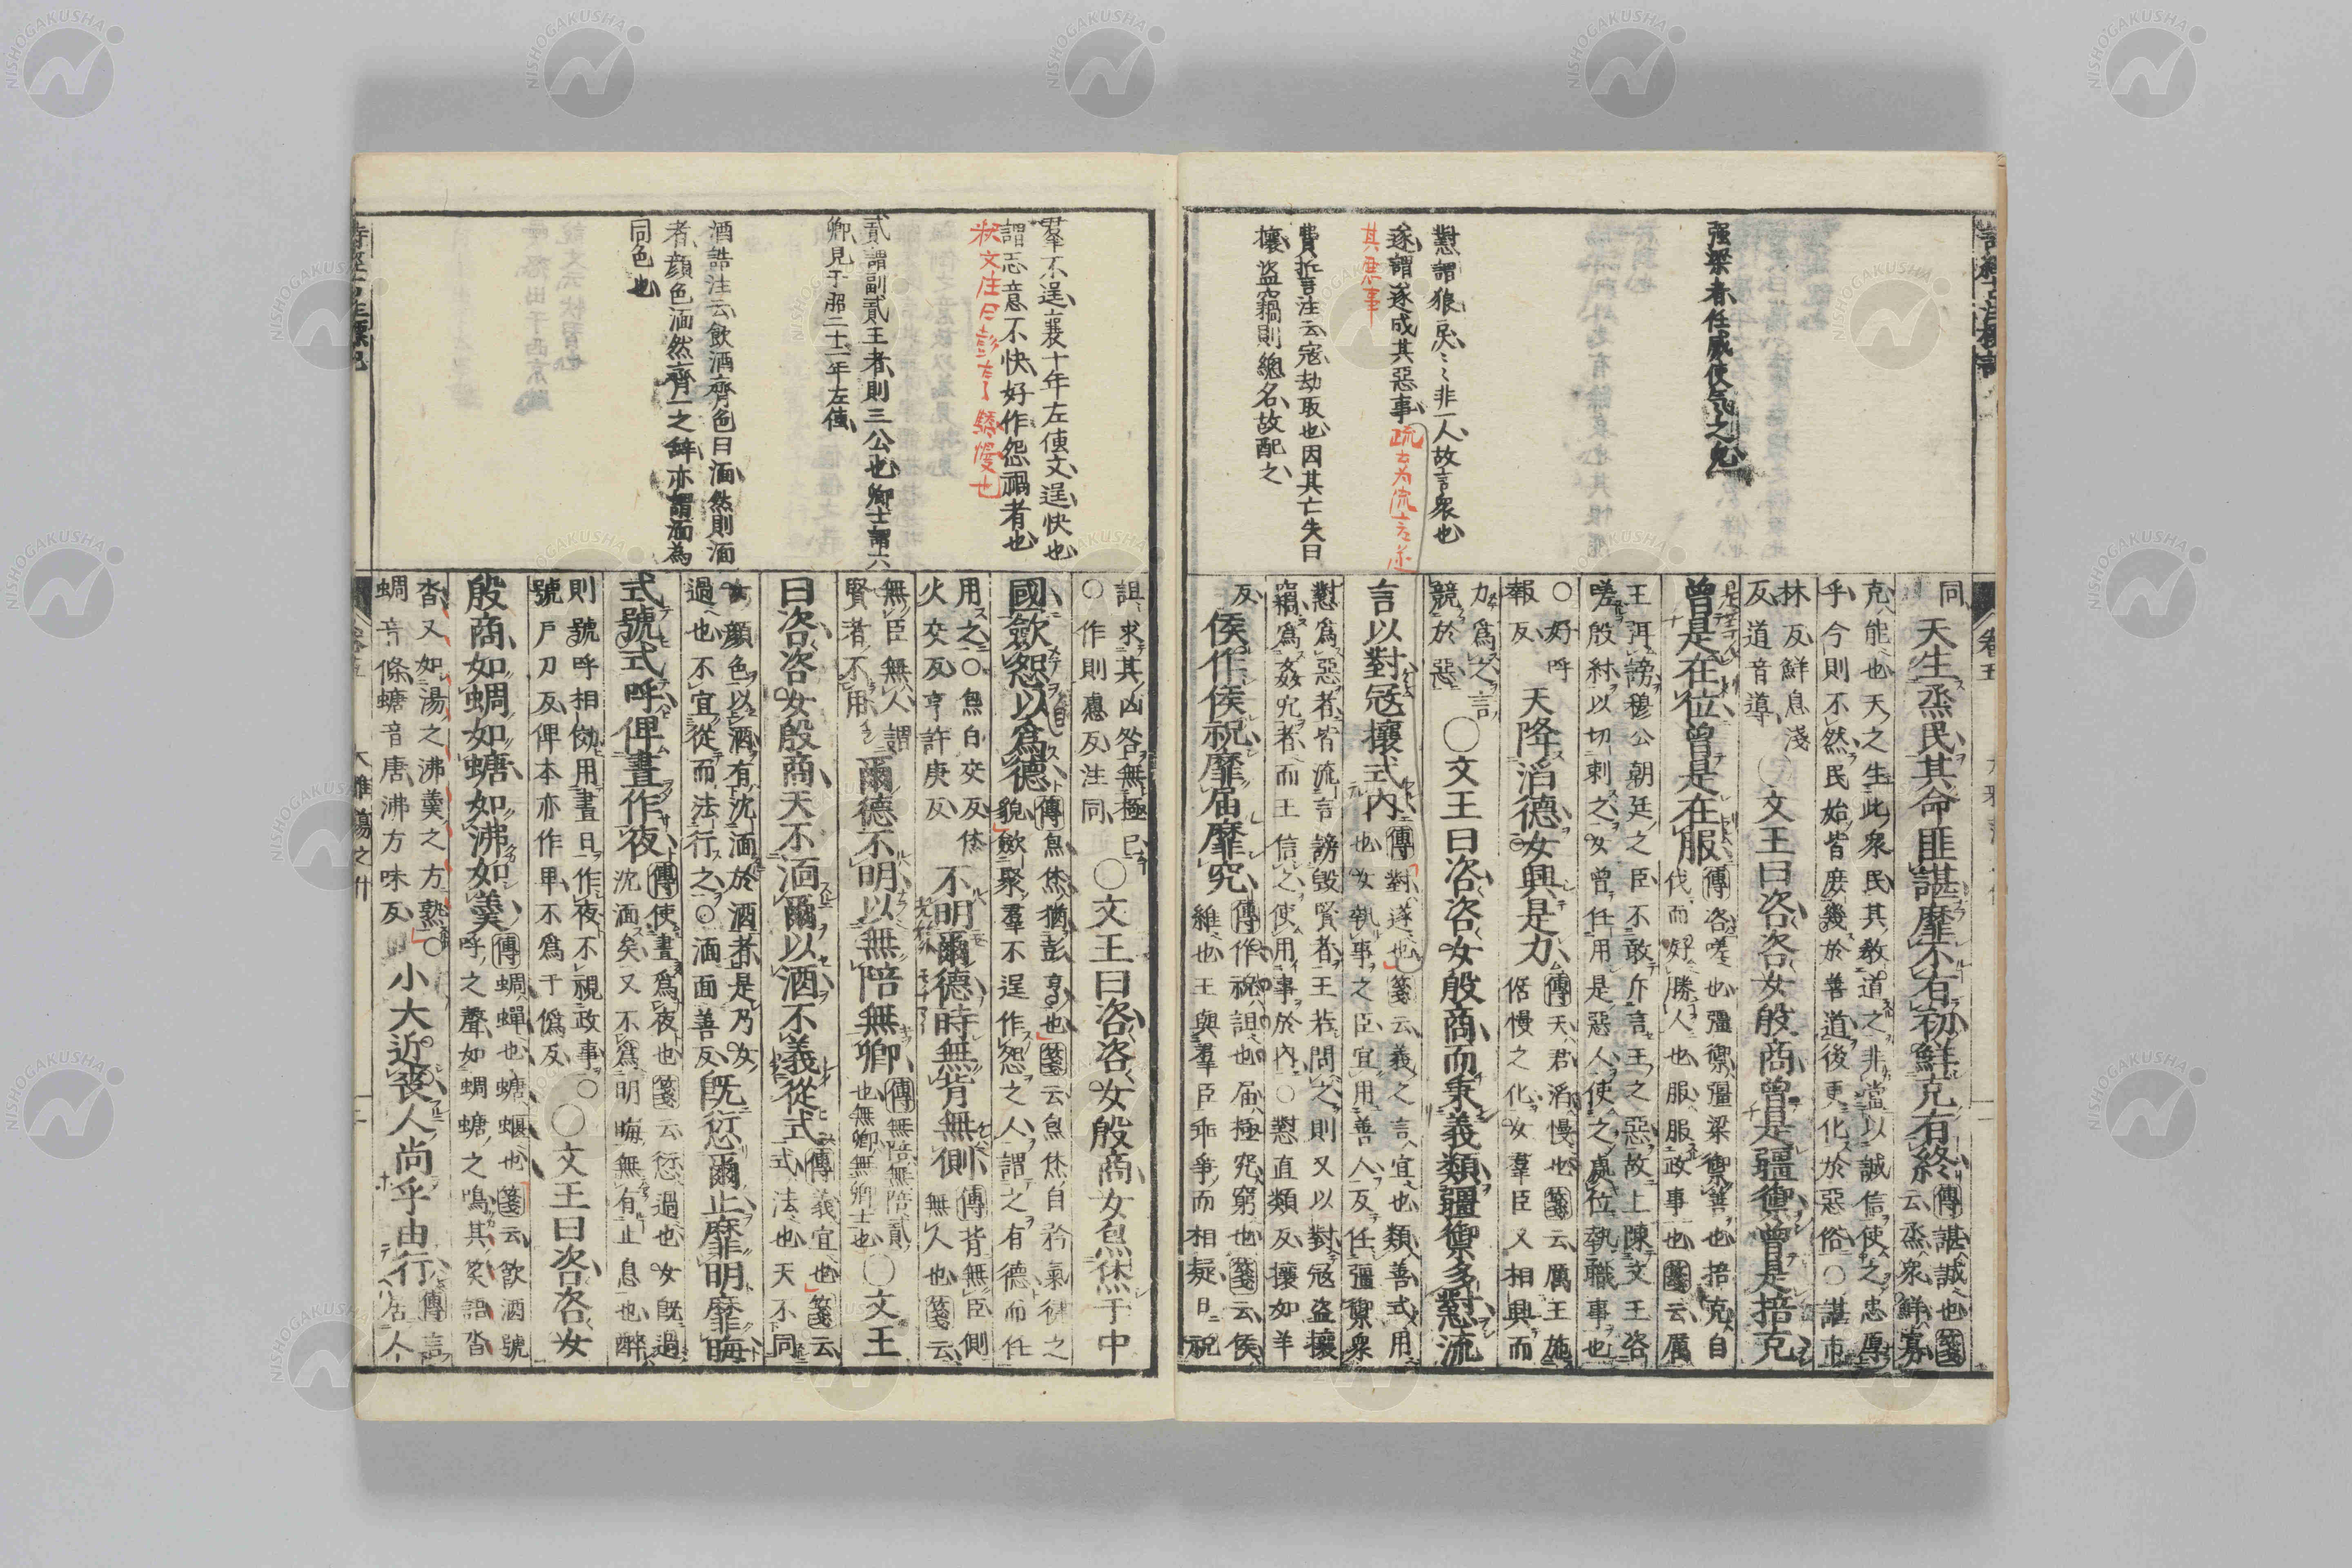 强梁者任威使气之鬼
懟謂狼戾〻〻非一人故言衆也
遂謂遂成其惡事疏云為流言遂
其惡事
費誓注云寇劫取也因其亡失曰
攘盜竊則總名故配之
卷五
同
天生烝民其命匪諶靡不有初鮮克有終
傳諶誠也箋
云烝衆鮮寡
克能也天之生此衆民其教道之非當以誠信使之忠厚
乎今則不然民始皆庶幾於善道後更化於惡俗○諶市
林反鮮息淺
反道音導
○文王曰咨咨女殷商曾是彊禦曾是掊克
曾是在位曾是在服
傳咨嗟也彊禦彊梁禦善也掊克自
伐而好勝人也服服政事也箋云厲
王弭謗穆公朝廷之臣不敢斥言王之惡故上陳文王咨
嗟殷紂以切刺之女曾任用是惡人使之處位執職事也
○好呼
報反
天降滔德女興是力
傳天君滔慢也箋云厲王施
倨慢之化女羣臣又相興而
力爲之言
競於惡
○文王曰咨咨女殷商而秉義類彊禦多懟流
言以對寇攘式內
傳對遂也箋云義之言宜也類善式用
也女執事之臣宜用善人反任彊禦衆
懟爲惡者皆流言謗毀賢者王若問之則又以對寇盜攘
竊爲姦宄者而王信之使用事於內○懟直類反攘如羊
反
侯作侯祝靡屆靡究
傳作祝詛也屆極究窮也箋云侯
維也王與羣臣乖爭而相疑日祝
羣不逞襄十年左傳文逞快也
謂忢意不快好作怨禍者也
釈文庄曰彭亨驕慢也
貳謂副貳王者則三公也卿士謂六
卿見于昭二十一年左傳
酒誥注云飲酒齊色曰湎然則湎
者顔色湎然齊一之辭亦謂湎為
同色也
詛求其凶咎無極已
○作則慮反注同
○文王曰咨咨女殷商女炰烋于中
國斂怨以爲德
傳炰烋猶彭亨也箋云炰烋自矜氣健之
貌斂聚羣不逞作怨之人謂之有德而任
用之○炰白交反烋
火交反亨許庚反
不明爾德時無背無側
傳背無臣側
無人也箋云
無臣無人謂
賢者不用
爾德不明以無陪無卿
傳無陪無陪貳
也無卿無卿士也
○文王
曰咨咨女殷商天不湎爾以酒不義從式
傳義宜也箋云
式法也天不同
女顔色以酒有沈湎於酒者是乃女
過也不宜從而法行之○湎面善反
旣愆爾止靡明靡晦
式號式呼俾晝作夜
傳使晝爲夜也箋云愆過也女旣過
沈湎矣又不爲明晦無有止息也醉
則號呼相傚用晝日作夜不視政事○
號戶刀反俾本亦作卑不爲于僞反
○文王曰咨咨女
殷商如蜩如螗如沸如羹
傳蜩蟬也螗蝘也箋云飲酒號
呼之聲如蜩螗之鳴其笑語沓
沓又如湯之沸羹之方熟○
蜩音條螗音唐沸方味反
小大近喪人尚乎由行
傳言
居人
大雅蕩之什